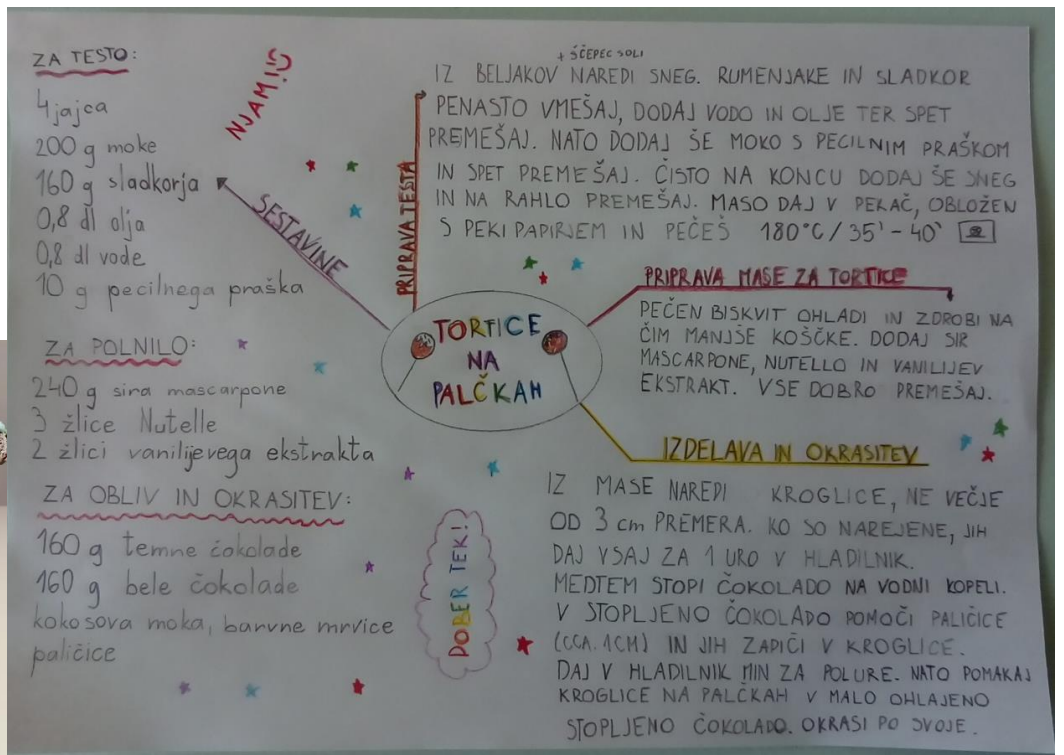 ZA TESTO:
4 jajca
200 g moke
160 g sladkorja
0,8 dl olja
0,8 dl vode
10 g pecilnega praška
ZA POLNILO:
240 g sira mascarpone
3 žlice Nutelle
2 žlici vanilijevega ekstrakta
ZA OBLIV IN OKRASITEV:
160 g temne čokolade
160 g bele čokolade
kokosova moka, barvne mrvice
paličice
NJAMI!
SESTAVINE
TORTICE
NA
PALČKAH
PRIPRAVA TESTA
+ ŠČEPEC SOLI
IZ BELJAKOV NAREDI SNEG. RUMENJAKE IN SLADKOR
PENASTO VMEŠAJ, DODAJ VODO IN OLJE TER SPET
PREMEŠAJ. NATO DODAJ ŠE MOKO S PECILNIM PRAŠKOM
IN SPET PREMEŠAJ. ČISTO NA KONCU DODAJ ŠE SNEG
IN NA RAHLO PREMEŠAJ. MASO DAJ V PEKAČ, OBLOŽEN
S PEKI PAPIRJEM IN PEČEŠ 180°C/35'-40'
PRIPRAVA MASE ZA TORTICE
PEČEN BISKVIT OHLADI IN ZDROBI NA
ČIM MANJŠE KOŠČKE. DODAJ SIR
MASCARPONE, NUTELLO IN VANILIJEV
EKSTRAKT. VSE DOBRO PREMEŠAJ.
IZDELAVA IN OKRASITEV
IZ MASE NAREDI KROGLICE, NE VEČJE
OD 3 cm PREMERA. KO SO NAREJENE, JIH
DAJ VSAJ ZA 1 URO V HLADILNIK.
MEDTEM STOPI ČOKOLADO NA VODNI KOPELI.
V STOPLJENO ČOKOLADO POMOČI PALIČICE
(CCA. 1CM) IN JIH ZAPIČI V KROGLICE.
DAJ V HLADILNIK MIN ZA POLURE. NATO POMAKAJ
KROGLICE NA PALČKAH V MALO OHLAJENO
STOPLJENO ČOKOLADO. OKRASI PO SVOJE.
DOBER TEK!